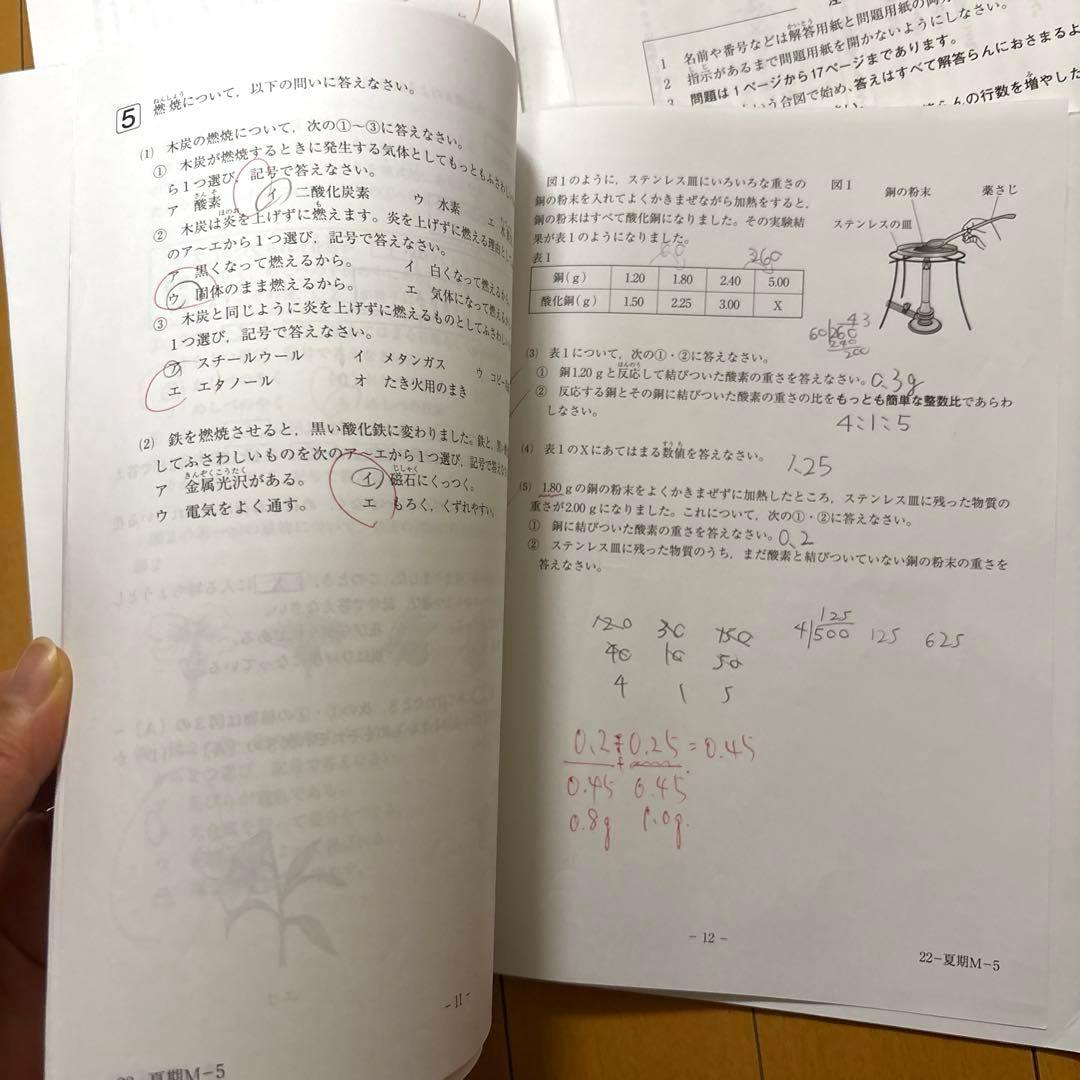 注
1 名前や番号などは解答用紙と問題用紙の両方
かいとう
2 指示があるまで問題用紙を開かないようにしなさい。
しじ
3 問題は1ページから17ページまであります。
という合図で始め、答えはすべて解答らんにおさまるよ
らんの行数を増やした
5 燃焼について，以下の問いに答えなさい。
ねんしょう
(1) 木炭の燃焼について，次の①〜③に答えなさい。
① 木炭が燃焼するときに発生する気体としてもっともふさわしい
ら1つ選び，記号で答えなさい。
ア 酸素 イ 二酸化炭素 ウ 水素 エ
さんそ
② 木炭は炎を上げずに燃えます。炎を上げずに燃える理由として
ほのお も
のア〜エから1つ選び，記号で答えなさい。
ア 黒くなって燃えるから。 イ 白くなって燃えるから。
ウ 固体のまま燃えるから。 エ 気体になって燃えるから
③ 木炭と同じように炎を上げずに燃えるものとしてふさわし
1つ選び，記号で答えなさい。
ア スチールウール イ メタンガス ウ コピー
エ エタノール オ たき火用のまき
(2) 鉄を燃焼させると，黒い酸化鉄に変わりました。鉄と，黒い
してふさわしいものを次のア〜エから1つ選び，記号で答え
ア 金属光沢がある。 イ 磁石にくっつく。
きんぞくこうたく じしゃく
ウ 電気をよく通す。 エ もろく，くずれやすい。
- 11 -
22-夏期M-5
図1のように，ステンレス皿にいろいろな重さの
銅の粉末を入れてよくかきまぜながら加熱をすると，
銅の粉末はすべて酸化銅になりました。その実験結
果が表1のようになりました。
図1
銅の粉末 薬さじ
ステンレスの皿
表1
60 260
銅(g) 1.20 1.80 2.40 5.00
酸化銅(g) 1.50 2.25 3.00 X
43
60 260
240
200
(3) 表1について，次の①・②に答えなさい。
はんのう
① 銅1.20gと反応して結びついた酸素の重さを答えなさい。 0.3g
② 反応する銅とその銅に結びついた酸素の重さの比をもっとも簡単な整数比であらわ
しなさい。
4:1:5
(4) 表1のXにあてはまる数値を答えなさい。 1.25
すうち
(5) 1.80gの銅の粉末をよくかきまぜずに加熱したところ，ステンレス皿に残った物質の
重さが2.00gになりました。これについて，次の①・②に答えなさい。
① 銅に結びついた酸素の重さを答えなさい。 0.2
② ステンレス皿に残った物質のうち，まだ酸素と結びついていない銅の粉末の重さを
答えなさい。
120 30 150
40 10 50
4 1 5
125
4 500 125 625
0.2+0.25=0.45
0.45 0.45
0.8g 1.0g.
- 12 -
22-夏期M-5